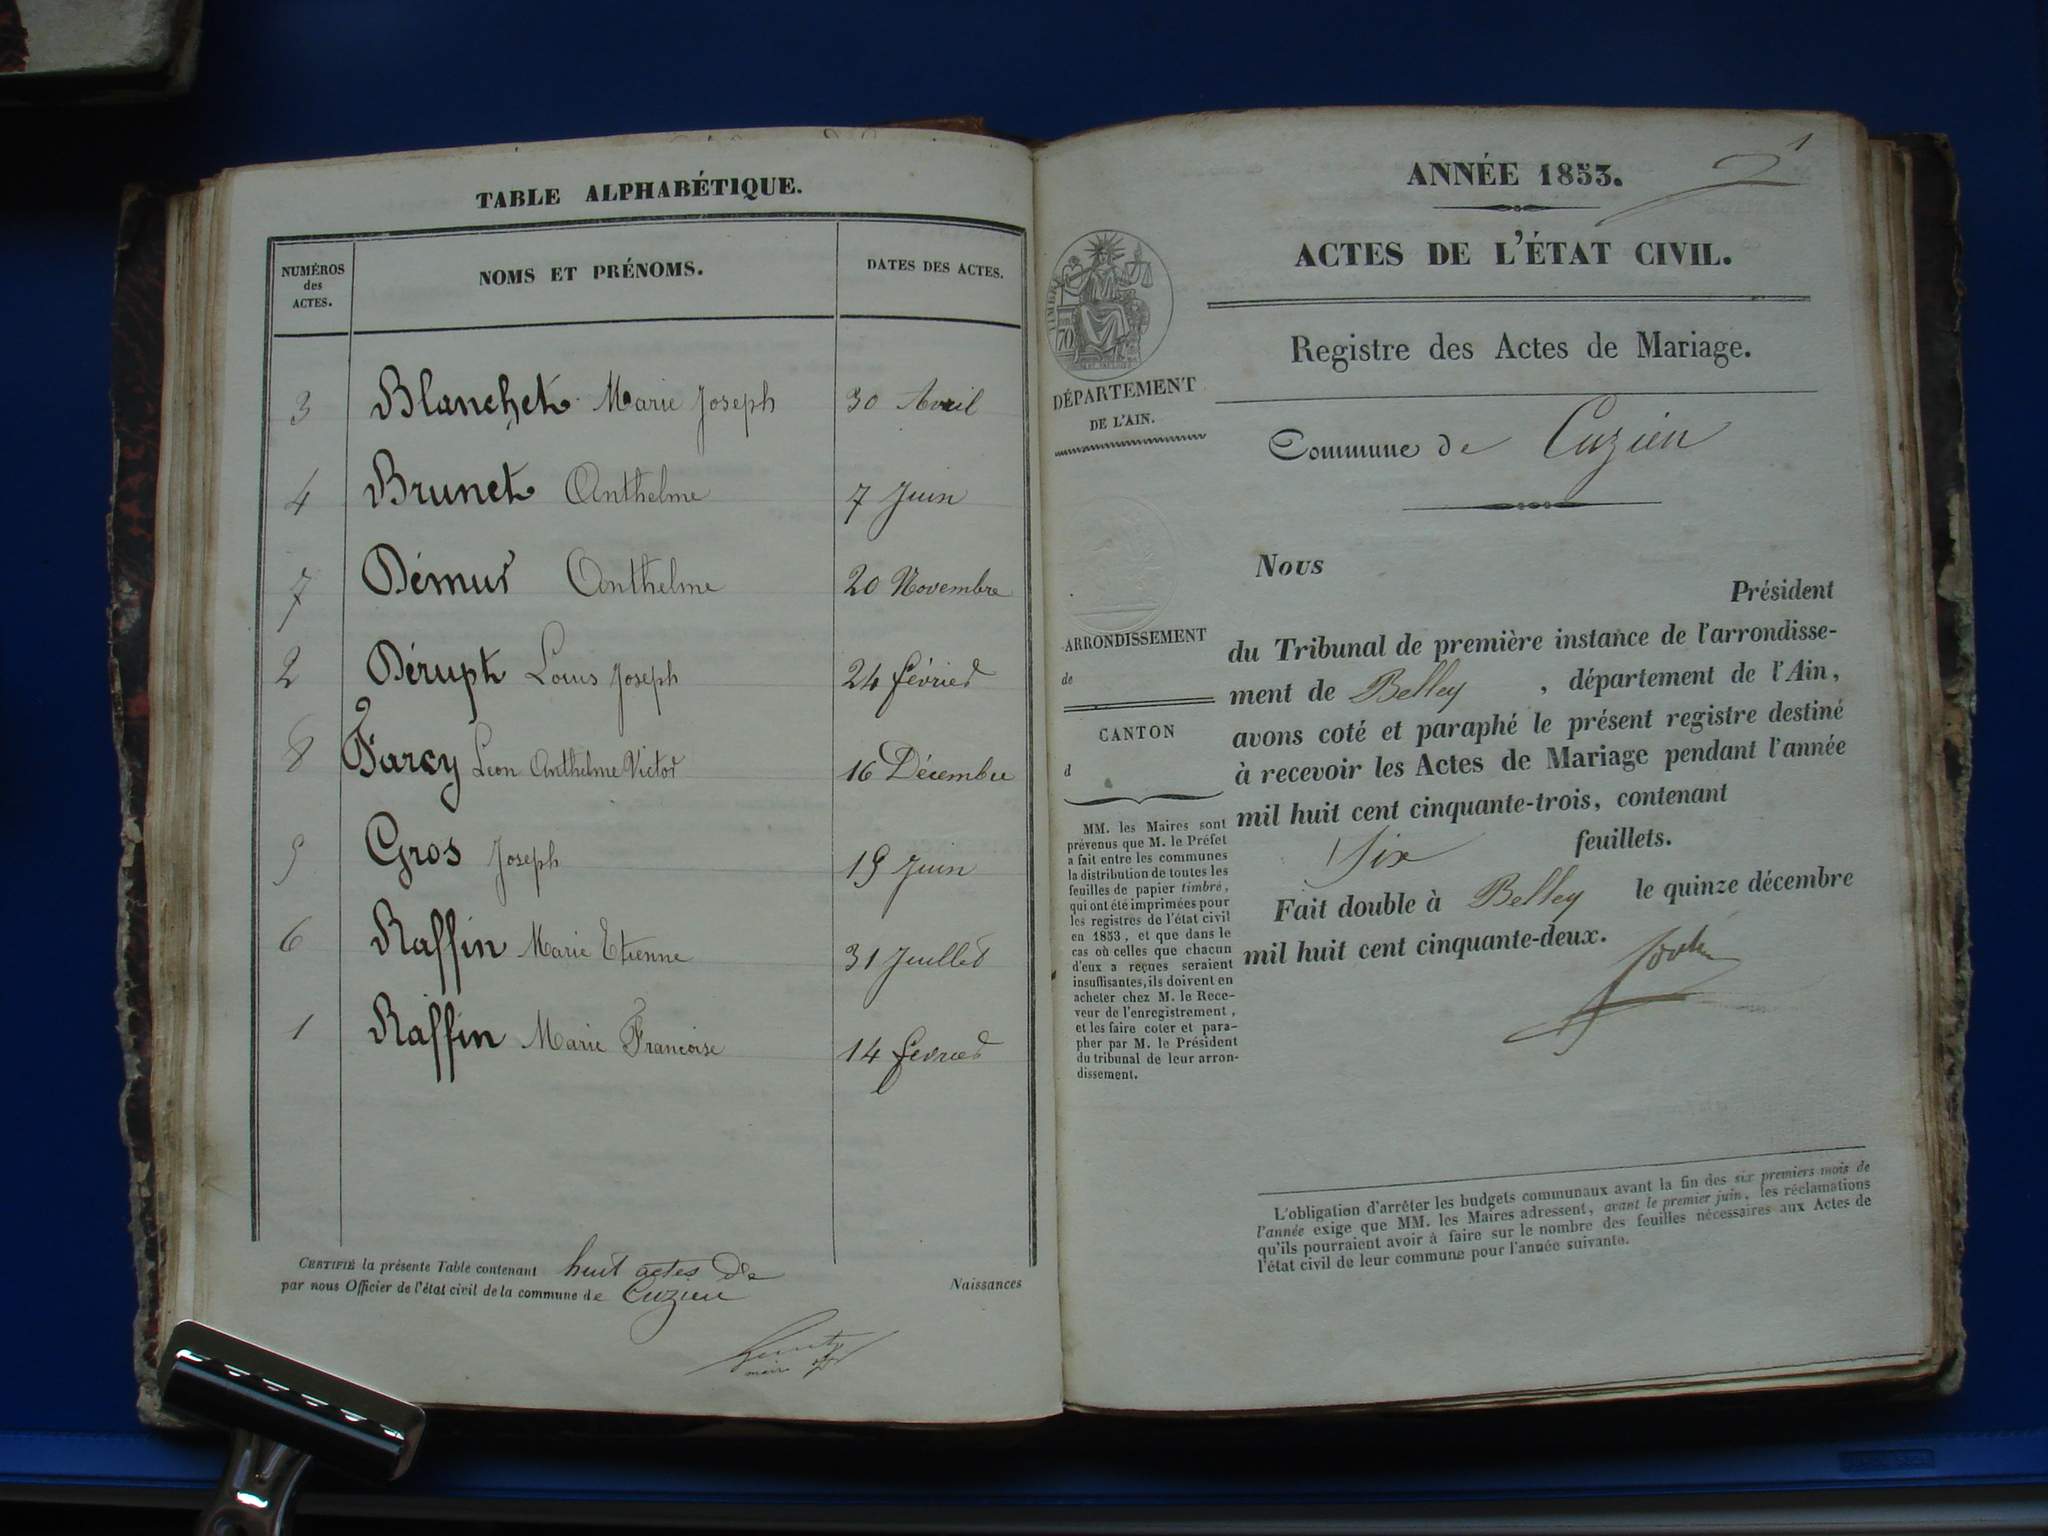 TABLE ALPHABÉTIQUE.
NUMÉROS
des
ACTES.
NOMS ET PRÉNOMS.
DATES DES ACTES.
3 Blanchet Marie Joseph 30 Avril
4 Brunet Anthelme 7 Juin
7 Démur Anthelme 20 Novembre
2 Dérupt Louis Joseph 24 février
8 Farcy Léon Anthelme Victor 16 Décembre
5 Gros Joseph 15 Juin
6 Raffin Marie Etienne 31 Juillet
1 Raffin Marie Francoise 14 fevrier
CERTIFIÉ la présente Table contenant huit actes de Naissances
par nous Officier de l'état civil de la commune de Cuzieu
1
2
ANNÉE 1853.
ACTES DE L'ÉTAT CIVIL.
Registre des Actes de Mariage.
TIMBRE
70
DÉPARTEMENT
DE L'AIN.
Commune de Cuzieu
ARRONDISSEMENT
de
CANTON
d
MM. les Maires sont
prévenus que M. le Préfet
a fait entre les communes
la distribution de toutes les
feuilles de papier timbré,
qui ont été imprimées pour
les registres de l'état civil
en 1853, et que dans le
cas où celles que chacun
d'eux a reçues seraient
insuffisantes, ils doivent en
acheter chez M. le Rece-
veur de l'enregistrement,
et les faire coter et para-
pher par M. le Président
du tribunal de leur arron-
dissement.
Nous
Président
du Tribunal de première instance de l'arrondisse-
ment de Belley , département de l'Ain,
avons coté et paraphé le présent registre destiné
à recevoir les Actes de Mariage pendant l'année
mil huit cent cinquante-trois, contenant
Six feuillets.
Fait double à Belley le quinze décembre
mil huit cent cinquante-deux.
L'obligation d'arrêter les budgets communaux avant la fin des six premiers mois de
l'année exige que MM. les Maires adressent, avant le premier juin, les réclamations
qu'ils pourraient avoir à faire sur le nombre des feuilles nécessaires aux Actes de
l'état civil de leur commune pour l'année suivante.